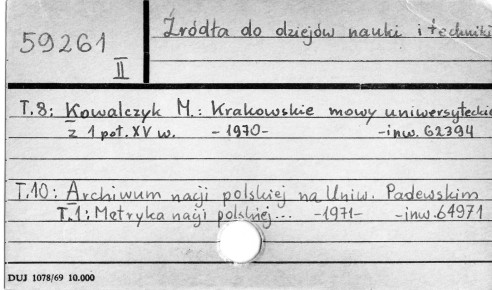 59261
II
Źródła do dziejów nauki i techniki
T.8: Kowalczyk M.: Krakowskie mowy uniwersyteckie
z 1 poł. XV w. -1970- -inw. 62394
T.10: Archiwum nacji polskiej na Uniw. Padewskim
T.1: Metryka nacji polskiej... -1971- -inw. 64971
DUJ 1078/69 10.000